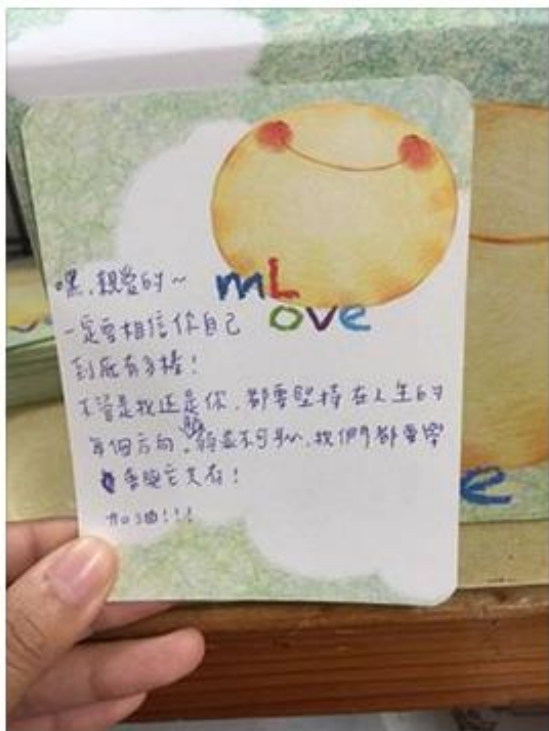 嘿,親愛的~
mL
ove
一定要相信你自己
到底有多棒!
不管是我還是你,都要堅持在人生的
每個方向,脆弱並不可恥,我們都要學
會與它共存!
加油!!!
e